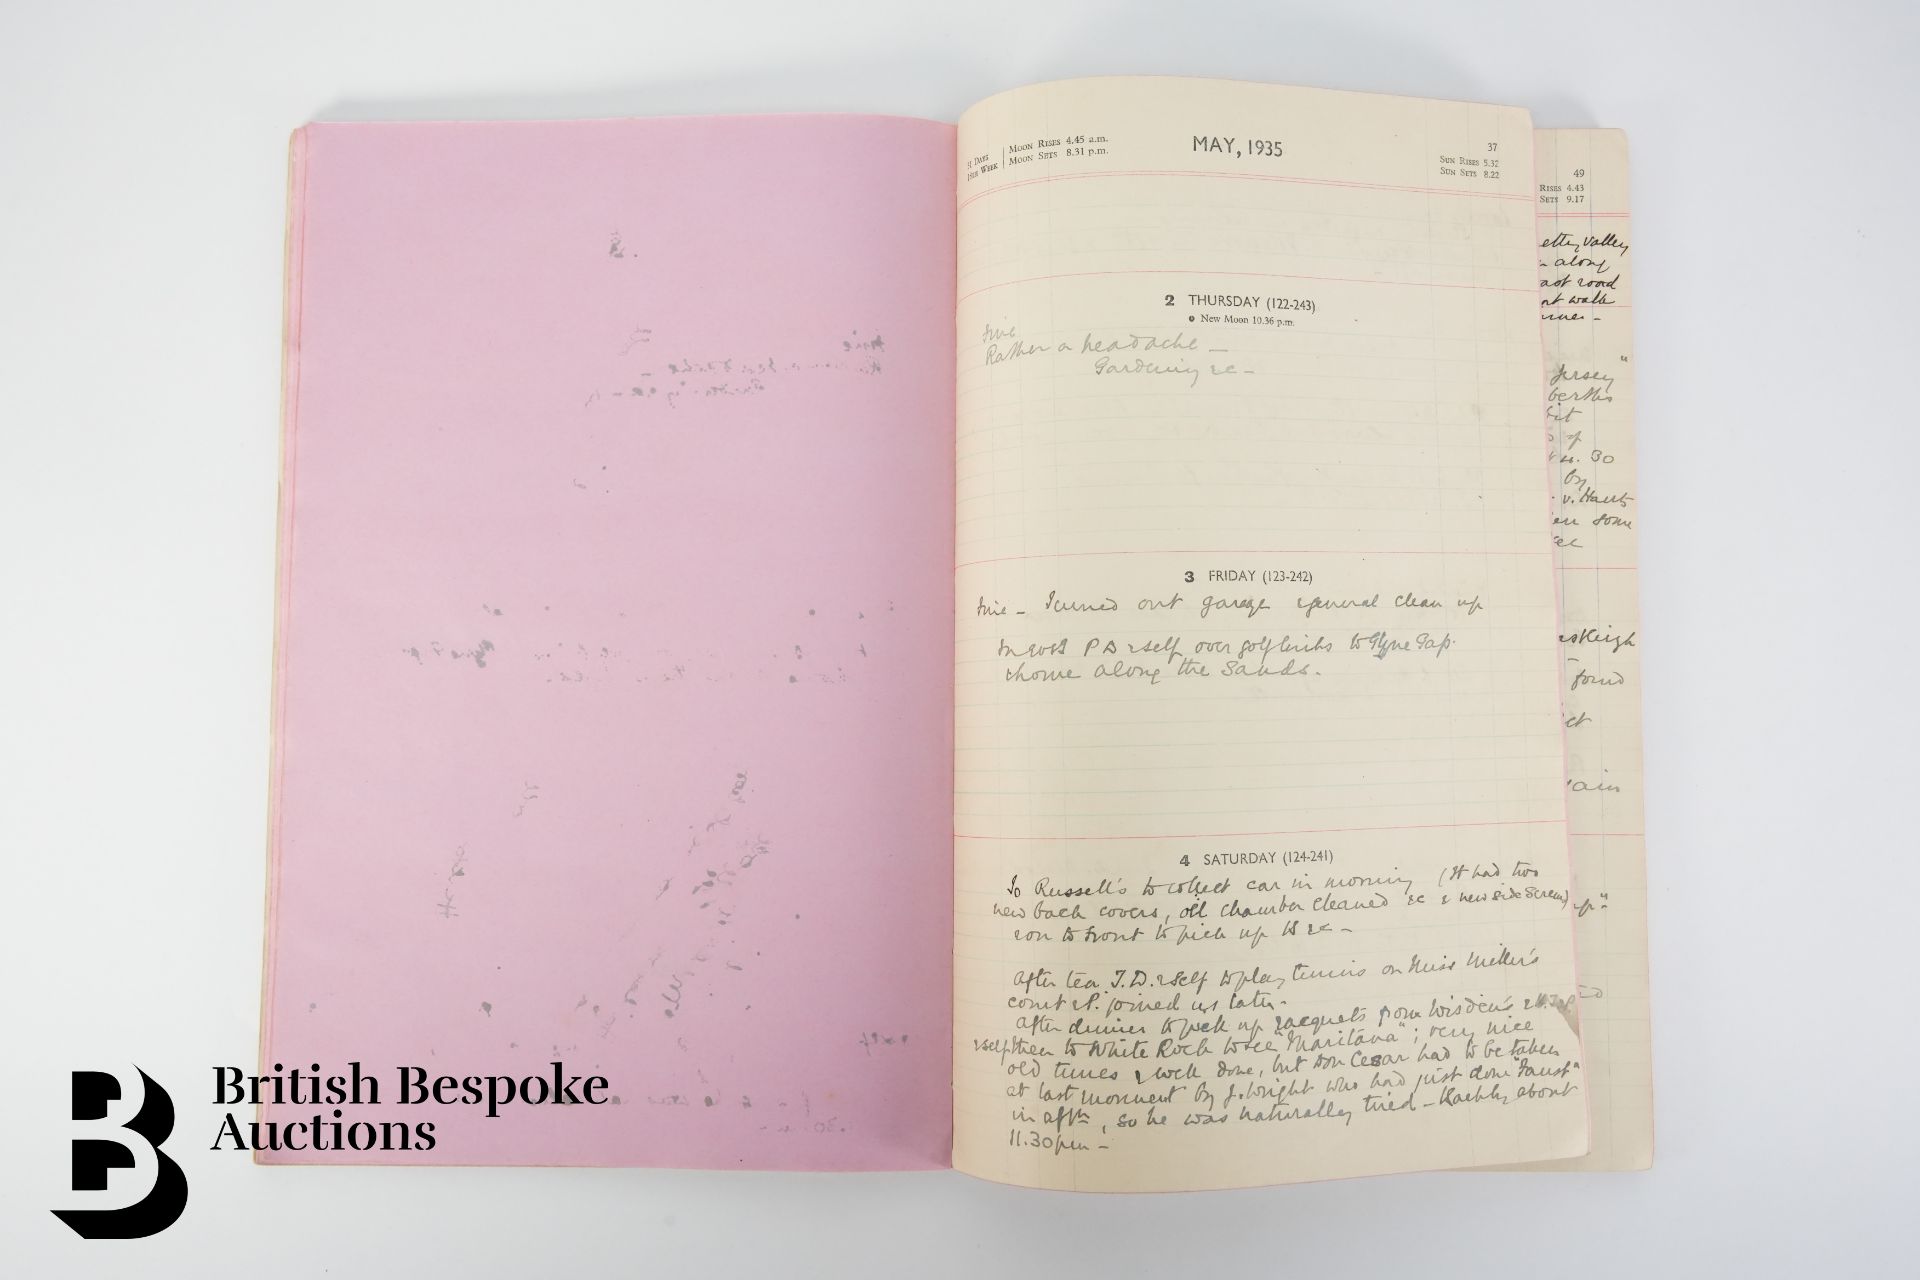 31 DAYS
18TH WEEK
MOON RISES 4.45 a.m.
MOON SETS 8.31 p.m.
MAY, 1935
37
SUN RISES 5.32
SUN SETS 8.22
2 THURSDAY (122-243)
New Moon 10.36 p.m.
Fine
Rather a headache —
Gardening &c —
3 FRIDAY (123-242)
Fine — Turned out garage & general clean up
P D & self over golf links to Glyne Gap
& home along the Sands.
4 SATURDAY (124-241)
To Russell's to collect car in morning (It had two
new back covers, oil chamber cleaned &c & new side screen)
& on to front to pick up &c —
After tea J.D. & self to play tennis on Miss Miller's
court & P. joined us later.
After dinner to pick up racquets from Wisden's
& self then to White Rock to see "Maritana"; very nice
old tunes & well done, but Don Cesar had to be taken
at last moment by J. Wright who had just done "Faust"
in aftn, so he was naturally tired — Back by about
11.30 pm —
49
RISES 4.43
SETS 9.17
valley
along
road
walk
Jersey"
berths
of
30
by
v. Hants
some
found
British Bespoke
Auctions
B